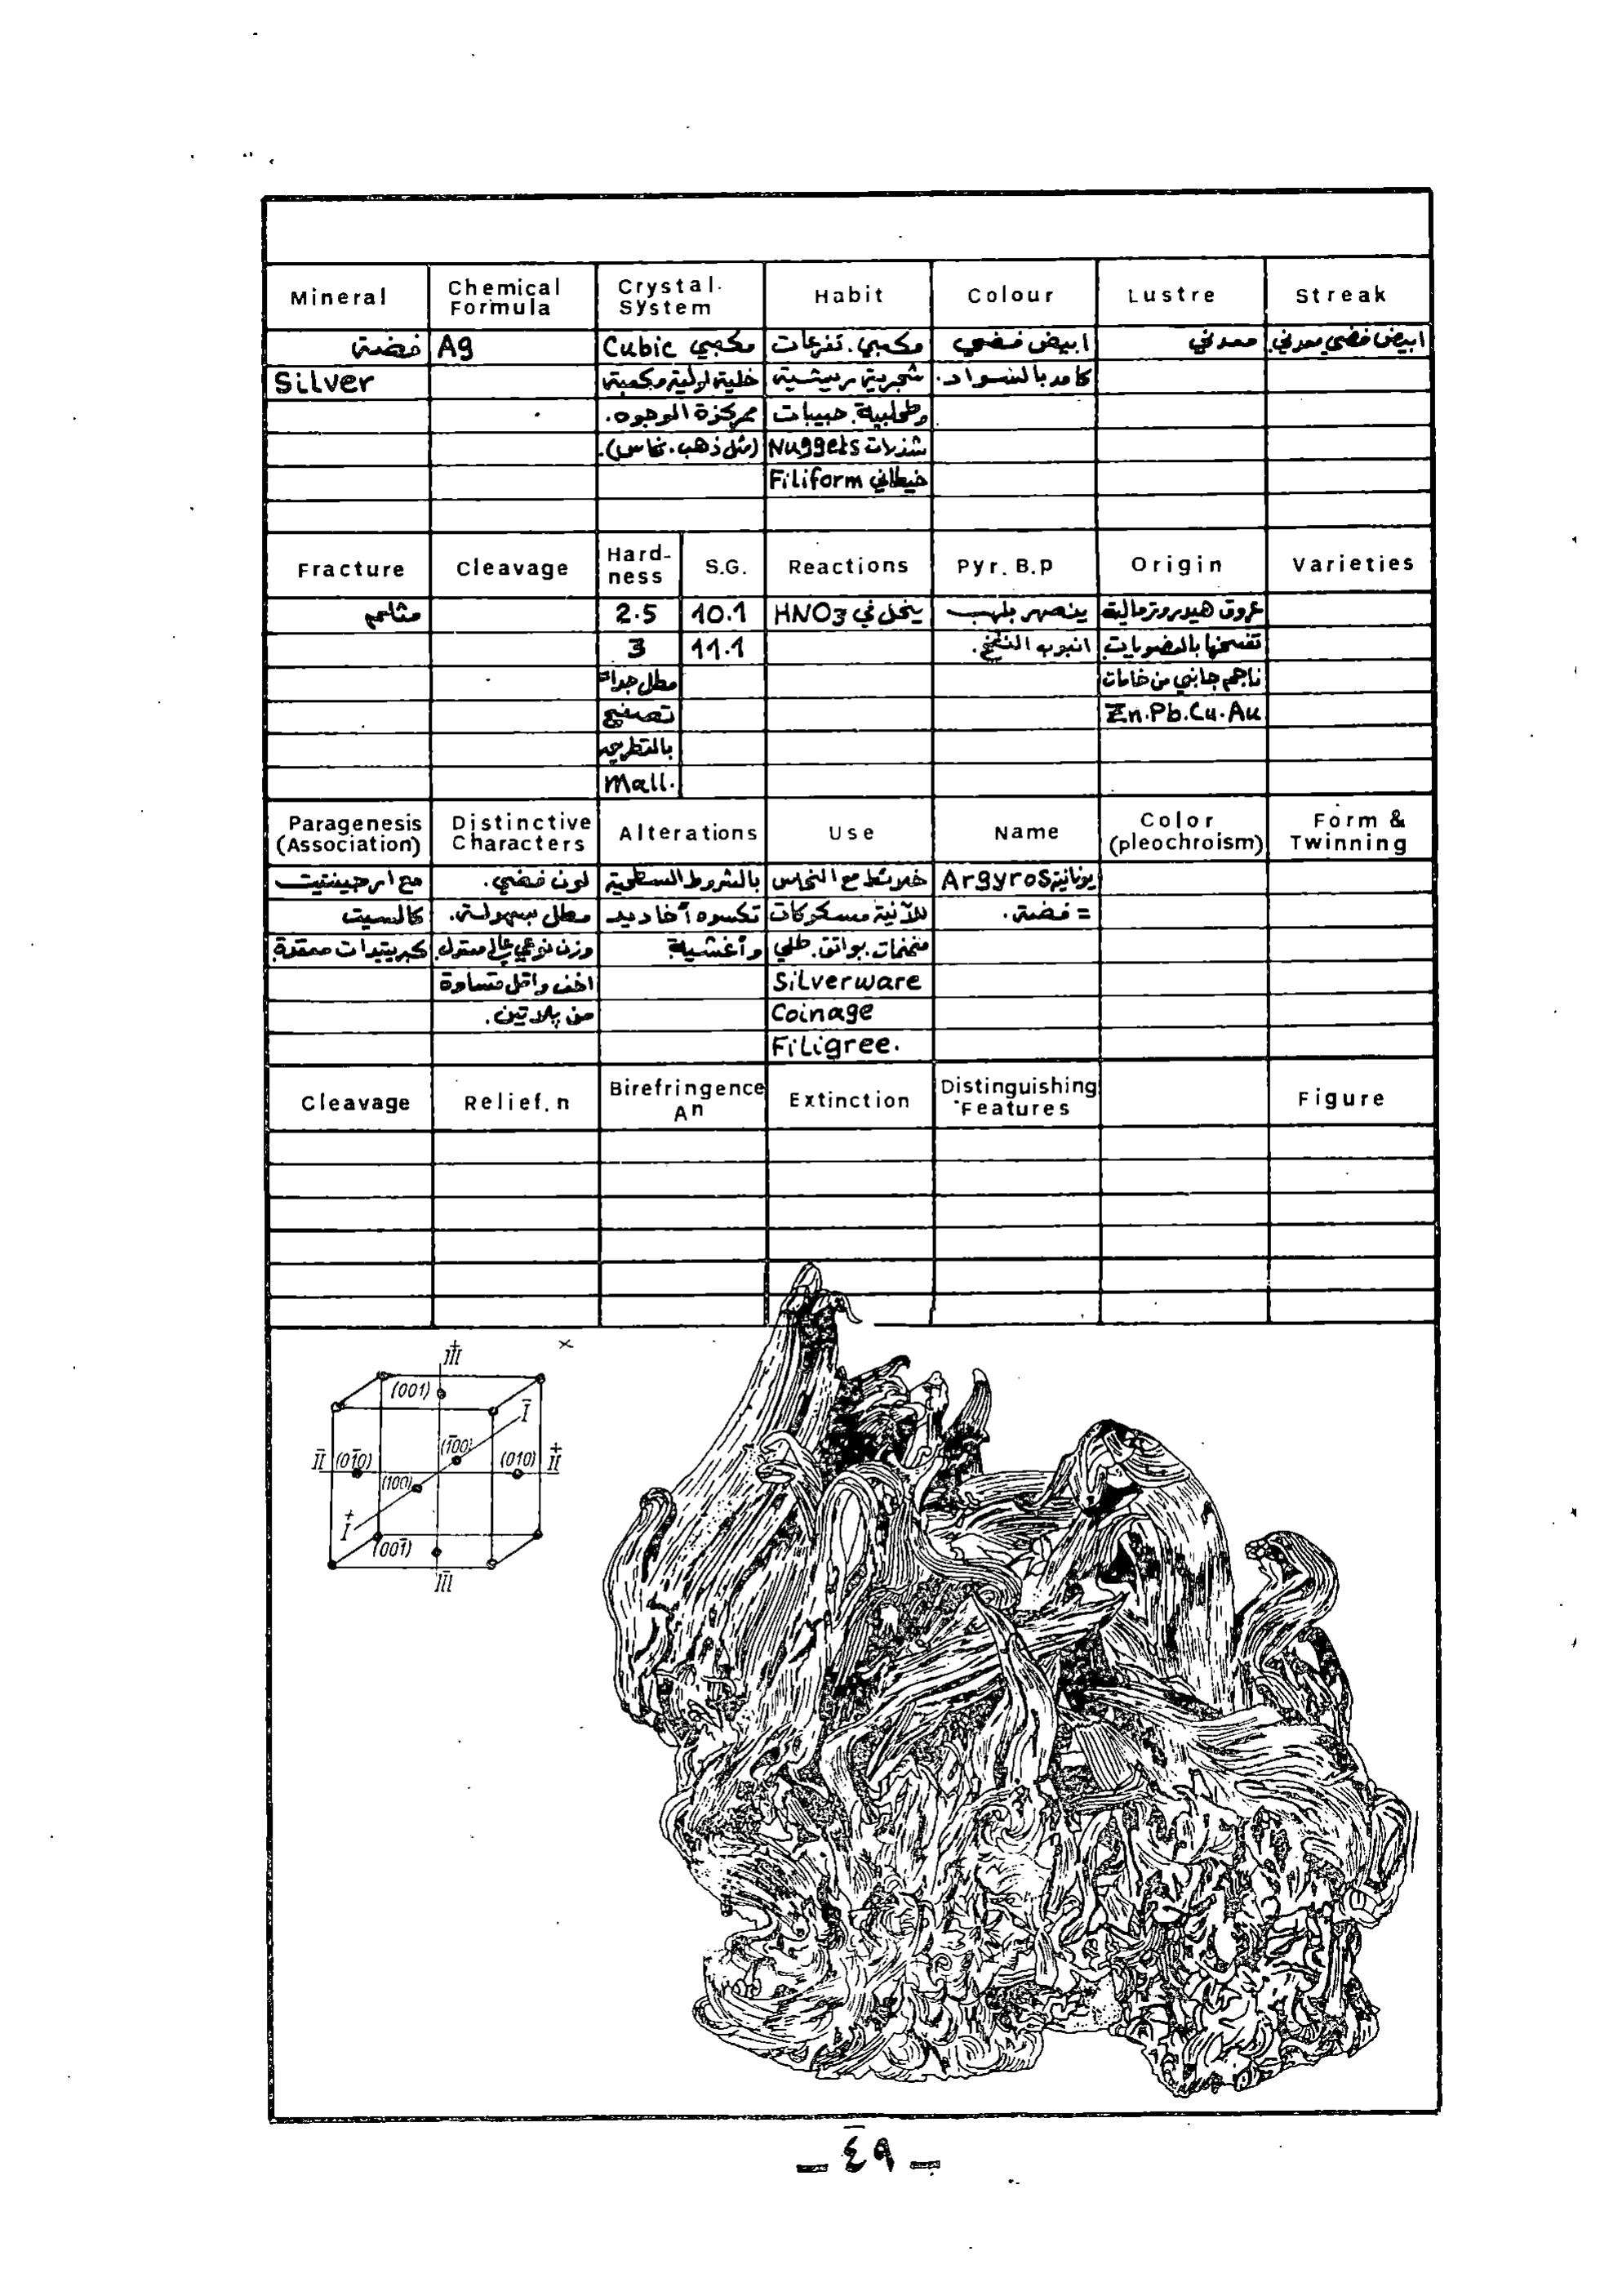 Mineral | Chemical Formula | Crystal System | Habit | Colour | Lustre | Streak
فضة | Ag | Cubic مكعبي | مكعبي. تفرعات | ابيض فضي | معدني | ابيض فضي معدني.
Silver | خلية اولية مكعبة | شجرية ريشية | كامد بالسواد.
ممركزة الوجوه. | وطحلبية. حبيبات
(مثل ذهب. نحاس). | Nuggets شذرات
Filiform خيطاني
Fracture | Cleavage | Hard-ness | S.G. | Reactions | Pyr. B.p | Origin | Varieties
مثلم | 2.5 | 10.1 | HNO3 ينحل في | ينصهر بلهب | عروق هيدروترمالية
3 | 11.1 | انبوب النفخ.
مطل جداً | ناجم جانبي من خامات
تصفيح | Zn.Pb.Cu.Au
بالتطريق
Mall.
Paragenesis (Association) | Distinctive Characters | Alterations | Use | Name | Color (pleochroism) | Form & Twinning
مع ارجينتيت | لون فضي. | بالشروط السطحية | خلائط مع النحاس | Argyros يونانية
كالسيت | مطل بسهولة. | تكسوه أخاديد | للآنية مسكوكات | = فضة.
كبريتيدات معقدة | وزن نوعي عالي | وأغشية | بواتق. طلي
اخف واقل قساوة | Silverware
من پلاتين. | Coinage
Filigree.
Cleavage | Relief. n | Birefringence Δn | Extinction | Distinguishing Features | Figure
+III
(001)
-I
(-100)
-II (0-10) | (010) +II
(100)
+I
(00-1)
-III
_ ٤٩ _